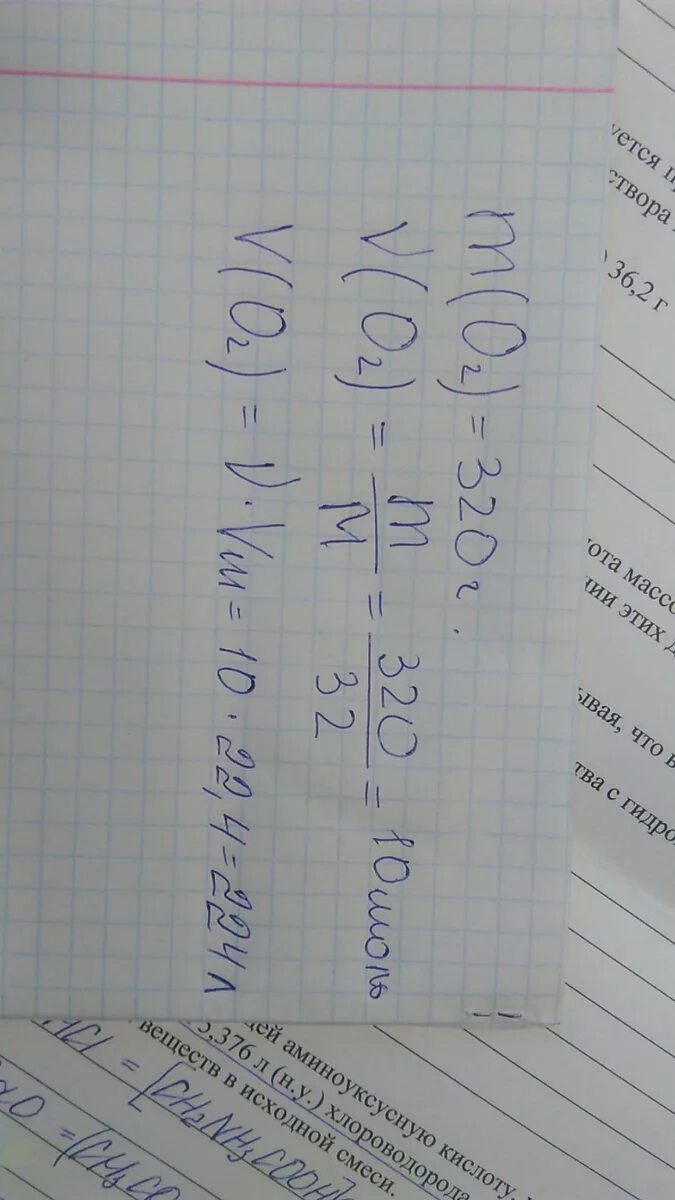 m(O₂) = 320 г.
ν(O₂) = m/M = 320/32 = 10 моль
V(O₂) = ν · Vm = 10 · 22,4 = 224 л
створа
36,2 г
эти д
ывая, что в
тва с гидро
аминоуксусную кислоту,
5,376 л (н.у.) хлороводорода
веществ в исходной смеси.
HCl = [CH₂NH₃COOH]